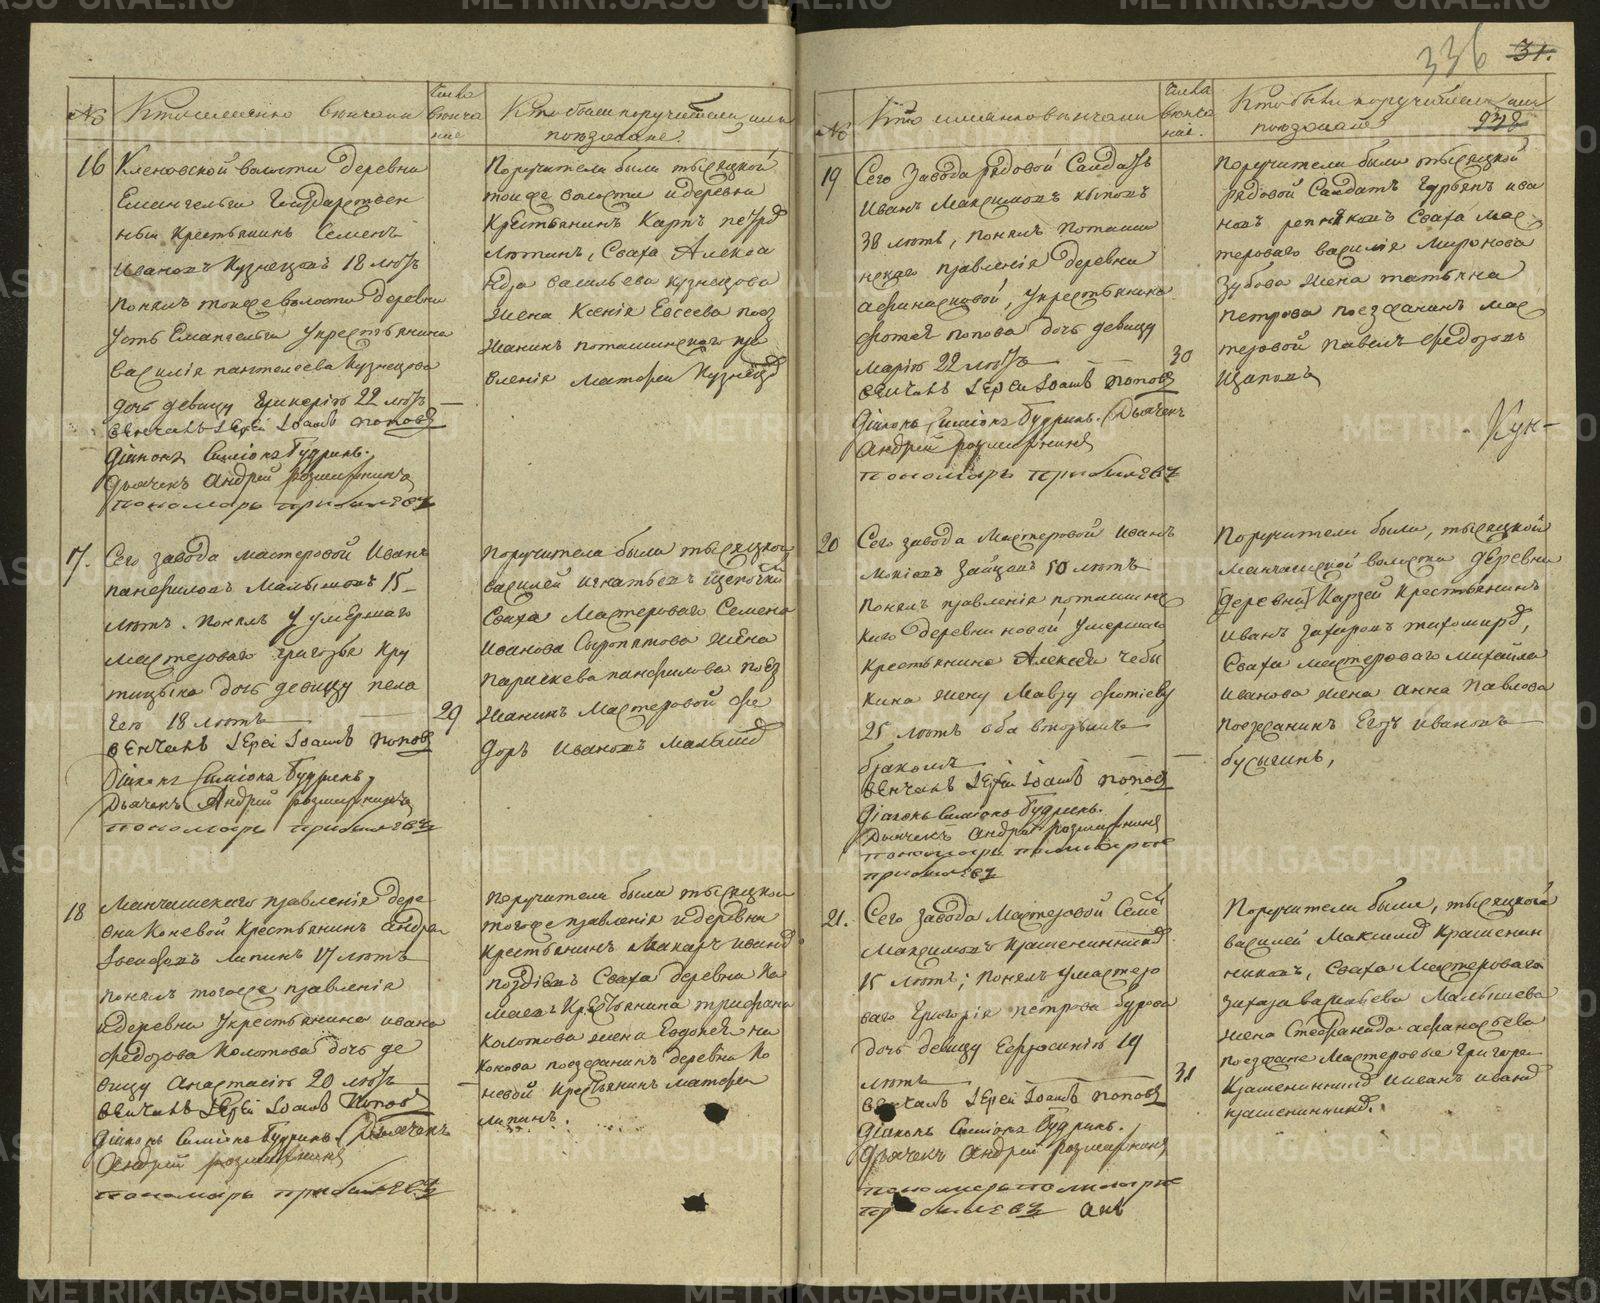 336 31.
№
Кто имянно венчаны
Числа венчание
Кто были поручители или поезжане.
16
Кленовской волости деревни
Емангельги Государствен
ный крестьянинъ Семенъ
Ивановъ Кузнецовъ 18 летъ
понялъ тойже волости деревни
Усть Емангельги у крестьянина
Василія Пантелеева Кузнецова
дочь девицу Гликерію 22 летъ
венчалъ Іерей Іоаннъ Поповъ
Діаконъ Симіонъ Будринъ.
Дьячекъ Андрей
Пономарь Прибылевъ
Поручители были тысяцкой
тойже волости и деревни
Крестьянинъ Карпъ Петровъ
Сваха Алекса
ндра Васильева Кузнецова
жена Ксенія Евсеева поез
жанинъ Поташинскаго пра
вленія Матфей Кузнецовъ
17.
Сего завода мастеровой Иванъ
Панфиловъ Малышовъ 15
летъ. Понялъ у умершаго
мастероваго Григорья Кру
тицына дочь девицу Пела
гею 18 летъ
29
венчалъ Іерей Іоаннъ Поповъ
Діаконъ Симіонъ Будринъ
Дьячекъ Андрей
Пономарь Прибылевъ
Поручители были тысяцкой
Василей Игнатьевъ
Сваха мастероваго Семена
Иванова Сыропятова жена
Параскева Панфилова поез
жанинъ мастеровой Фе
доръ Ивановъ Малышовъ
18
Манчашскаго правленія дере
вни Коневой Крестьянинъ Андрей
Іосифовъ Липинъ 17 летъ
понялъ тогоже правленія
и деревни у крестьянина Ивана
Федорова Колотова дочь де
вицу Анастасію 20 летъ
венчалъ Іерей Іоаннъ Поповъ
Діаконъ Симіонъ Будринъ. Дьячекъ
Андрей
Пономарь Прибылевъ
Поручители были тысяцкой
тогоже правленія и деревни
Крестьянинъ Макаръ Ивановъ
Сваха деревни Ко
Крестьянина Трифана
Колотова жена Евдокея
поезжанинъ деревни Ко
невой Крестьянинъ Матфей
Липинъ.
№
Кто имянно венчаны
Числа венчание.
Кто были поручители или
поезжане
938
19
Сего Завода рядовой Салдатъ
Иванъ Максимовъ
38 летъ, понялъ Поташи
нскаго правленія деревни
Афинасковой, у крестьянина
Фотея Попова дочь девицу
Марію 22 летъ
30
венчалъ Іерей Іоаннъ Поповъ
Діаконъ Симіонъ Будринъ. Дьячекъ
Андрей
Пономарь Прибылевъ
Поручители были тысяцкой
рядовой Салдатъ Гурьянъ Ива
новъ Репняковъ Сваха мас
тероваго Василія Миронова
Зубова жена Татьяна
Петрова поезжанинъ мас
теровой Павелъ Федоровъ
Щаповъ
Кун-
20
Сего завода Мастеровой Иванъ
Зайцовъ 50 летъ
Понялъ правленія Поташинс
каго деревни новой умершаго
Крестьянина Алексея Чебы
кина жену Мавру Фотіеву
25 летъ оба вторымъ
бракомъ
венчалъ Іерей Іоаннъ Поповъ
Діаконъ Симіонъ Будринъ.
Дьячекъ Андрей
Пономарь
Прибылевъ
Поручители были, тысяцкой
Манчашской волости деревни
деревни Карзей Крестьянинъ
Иванъ Захаровъ Тихомировъ,
Сваха мастероваго Михайла
Иванова жена Анна Павлова
поезжанинъ Егоръ Ивановъ
Бусыгинъ,
21.
Сего завода Мастеровой Семе
Максимовъ Крашенинниковъ
15 летъ; Понялъ у мастеро
ваго Григорія Петрова Бурова
дочь девицу Ефросинію 19
летъ
31
венчалъ Іерей Іоаннъ Поповъ
Діаконъ Симіонъ Будринъ.
Дьячекъ Андрей
Пономарь
Прибылевъ
Поручители были, тысяцкой
Василей Максимовъ Крашенин
никовъ, Сваха Мастероваго
Захара Малышева
жена Стефанида Афанасьева
поезжане Мастеровые Григорей
Крашенинниковъ Иванъ Ивановъ
Крашенинниковъ.
METRIKI.GASO-URAL.RU